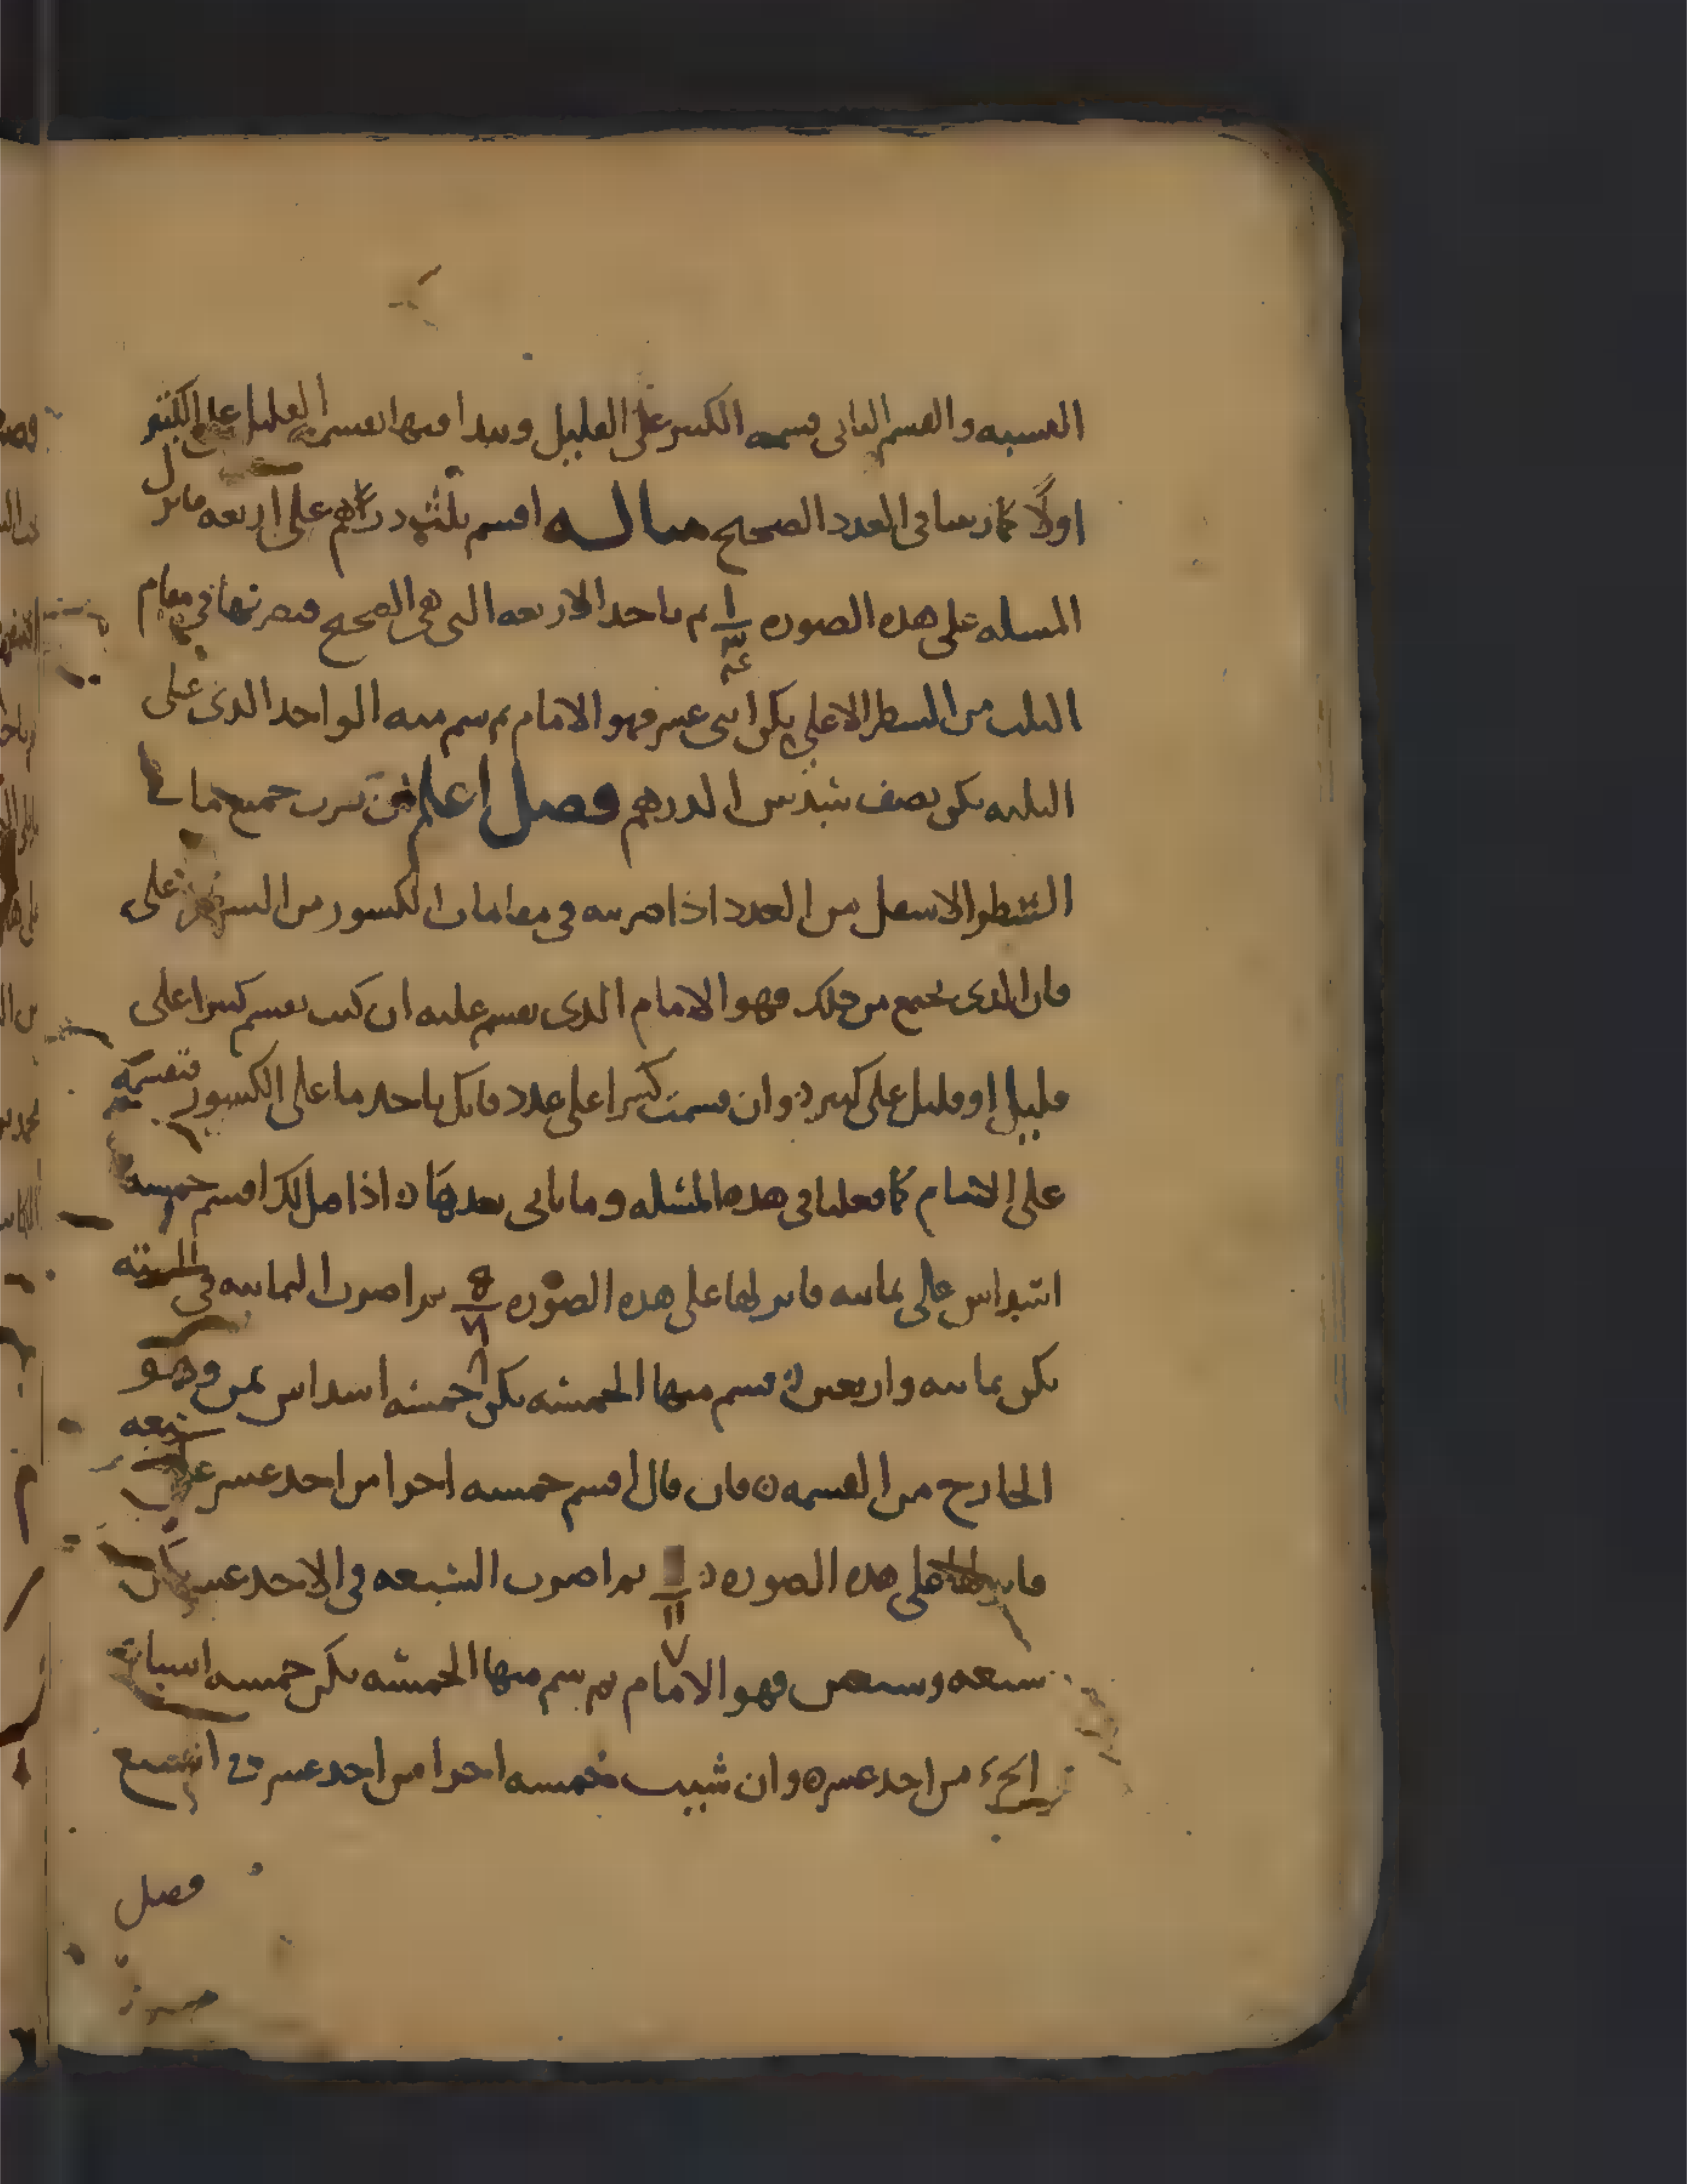 القسمه والقسم الثاني قسمه الكثير على القليل ونبدا منها بقسمه القليل على الكثير
اولًا كما رتبنا في العدد الصحيح مثاله اقسم ثلث درهم على اربعه فانزل
المسله على هذه الصوره ١/٣ ٤ ثم تاخذ الاربعه التي هي الصحيح فتضربها في مقام
الثلث من السطر الاعلى يكن اثنى عشر فهو الامام ثم سم منه الواحد الذي على
الثلثه يكن نصف سدس الدرهم فصل اعلم ان ضرب جميع ما في
السطر الاسفل من العدد اذا ضربته في مقامات الكسور من السطر الاعلى
فان الذي يجتمع من ذلك فهو الامام الذي تقسم عليه ان كنت تقسم كثيرا على
قليل او قليل على كثير وان قسمت كسرا على عدد فانك تاخد ما على الكسور فتقسمه
على الامام كما فعلنا في هذه المسله وما ياتي بعدها اذا قيل لك اقسم خمسه
اسداس على ثمانيه فانزلها على هذه الصوره ٥/٦ ٨ ثم اضرب الثمانيه في السته
يكن ثمانيه واربعين فسم منها الخمسه يكن خمسه اسداس ثمن وهو
الخارج من القسمه فان قال اقسم خمسه اجزا من احد عشر على سبعه
فانزلها على هذه الصوره ١١ ٧ ثم اضرب السبعه في الاحد عشر يكن
سبعه وسبعين فهو الامام ثم سم منها الخمسه يكن خمسه اسباع
الجزء من احد عشر وان شيت خمسه اجزا من احد عشر من السبع
فصل